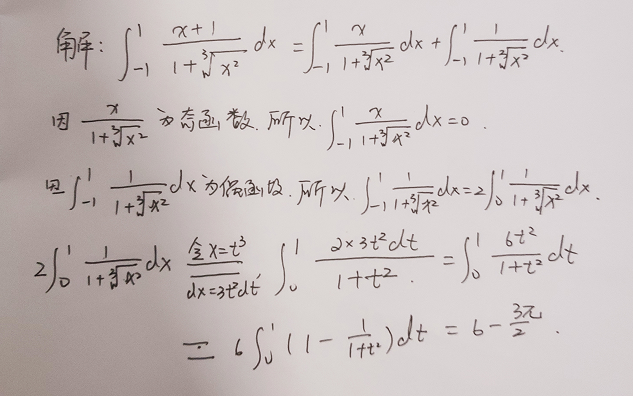 解: ∫_{-1}^{1} \frac{x+1}{1+\sqrt[3]{x^2}} dx = ∫_{-1}^{1} \frac{x}{1+\sqrt[3]{x^2}} dx + ∫_{-1}^{1} \frac{1}{1+\sqrt[3]{x^2}} dx.
因 \frac{x}{1+\sqrt[3]{x^2}} 为奇函数. 所以. ∫_{-1}^{1} \frac{x}{1+\sqrt[3]{x^2}} dx = 0.
因 ∫_{-1}^{1} \frac{1}{1+\sqrt[3]{x^2}} dx 为偶函数. 所以. ∫_{-1}^{1} \frac{1}{1+\sqrt[3]{x^2}} dx = 2∫_{0}^{1} \frac{1}{1+\sqrt[3]{x^2}} dx.
2∫_{0}^{1} \frac{1}{1+\sqrt[3]{x^2}} dx \xlongequal[dx=3t^2dt]{令x=t^3} ∫_{0}^{1} \frac{2×3t^2dt}{1+t^2} = ∫_{0}^{1} \frac{6t^2}{1+t^2} dt
= 6∫_{0}^{1} (1-\frac{1}{1+t^2}) dt = 6-\frac{3π}{2}.